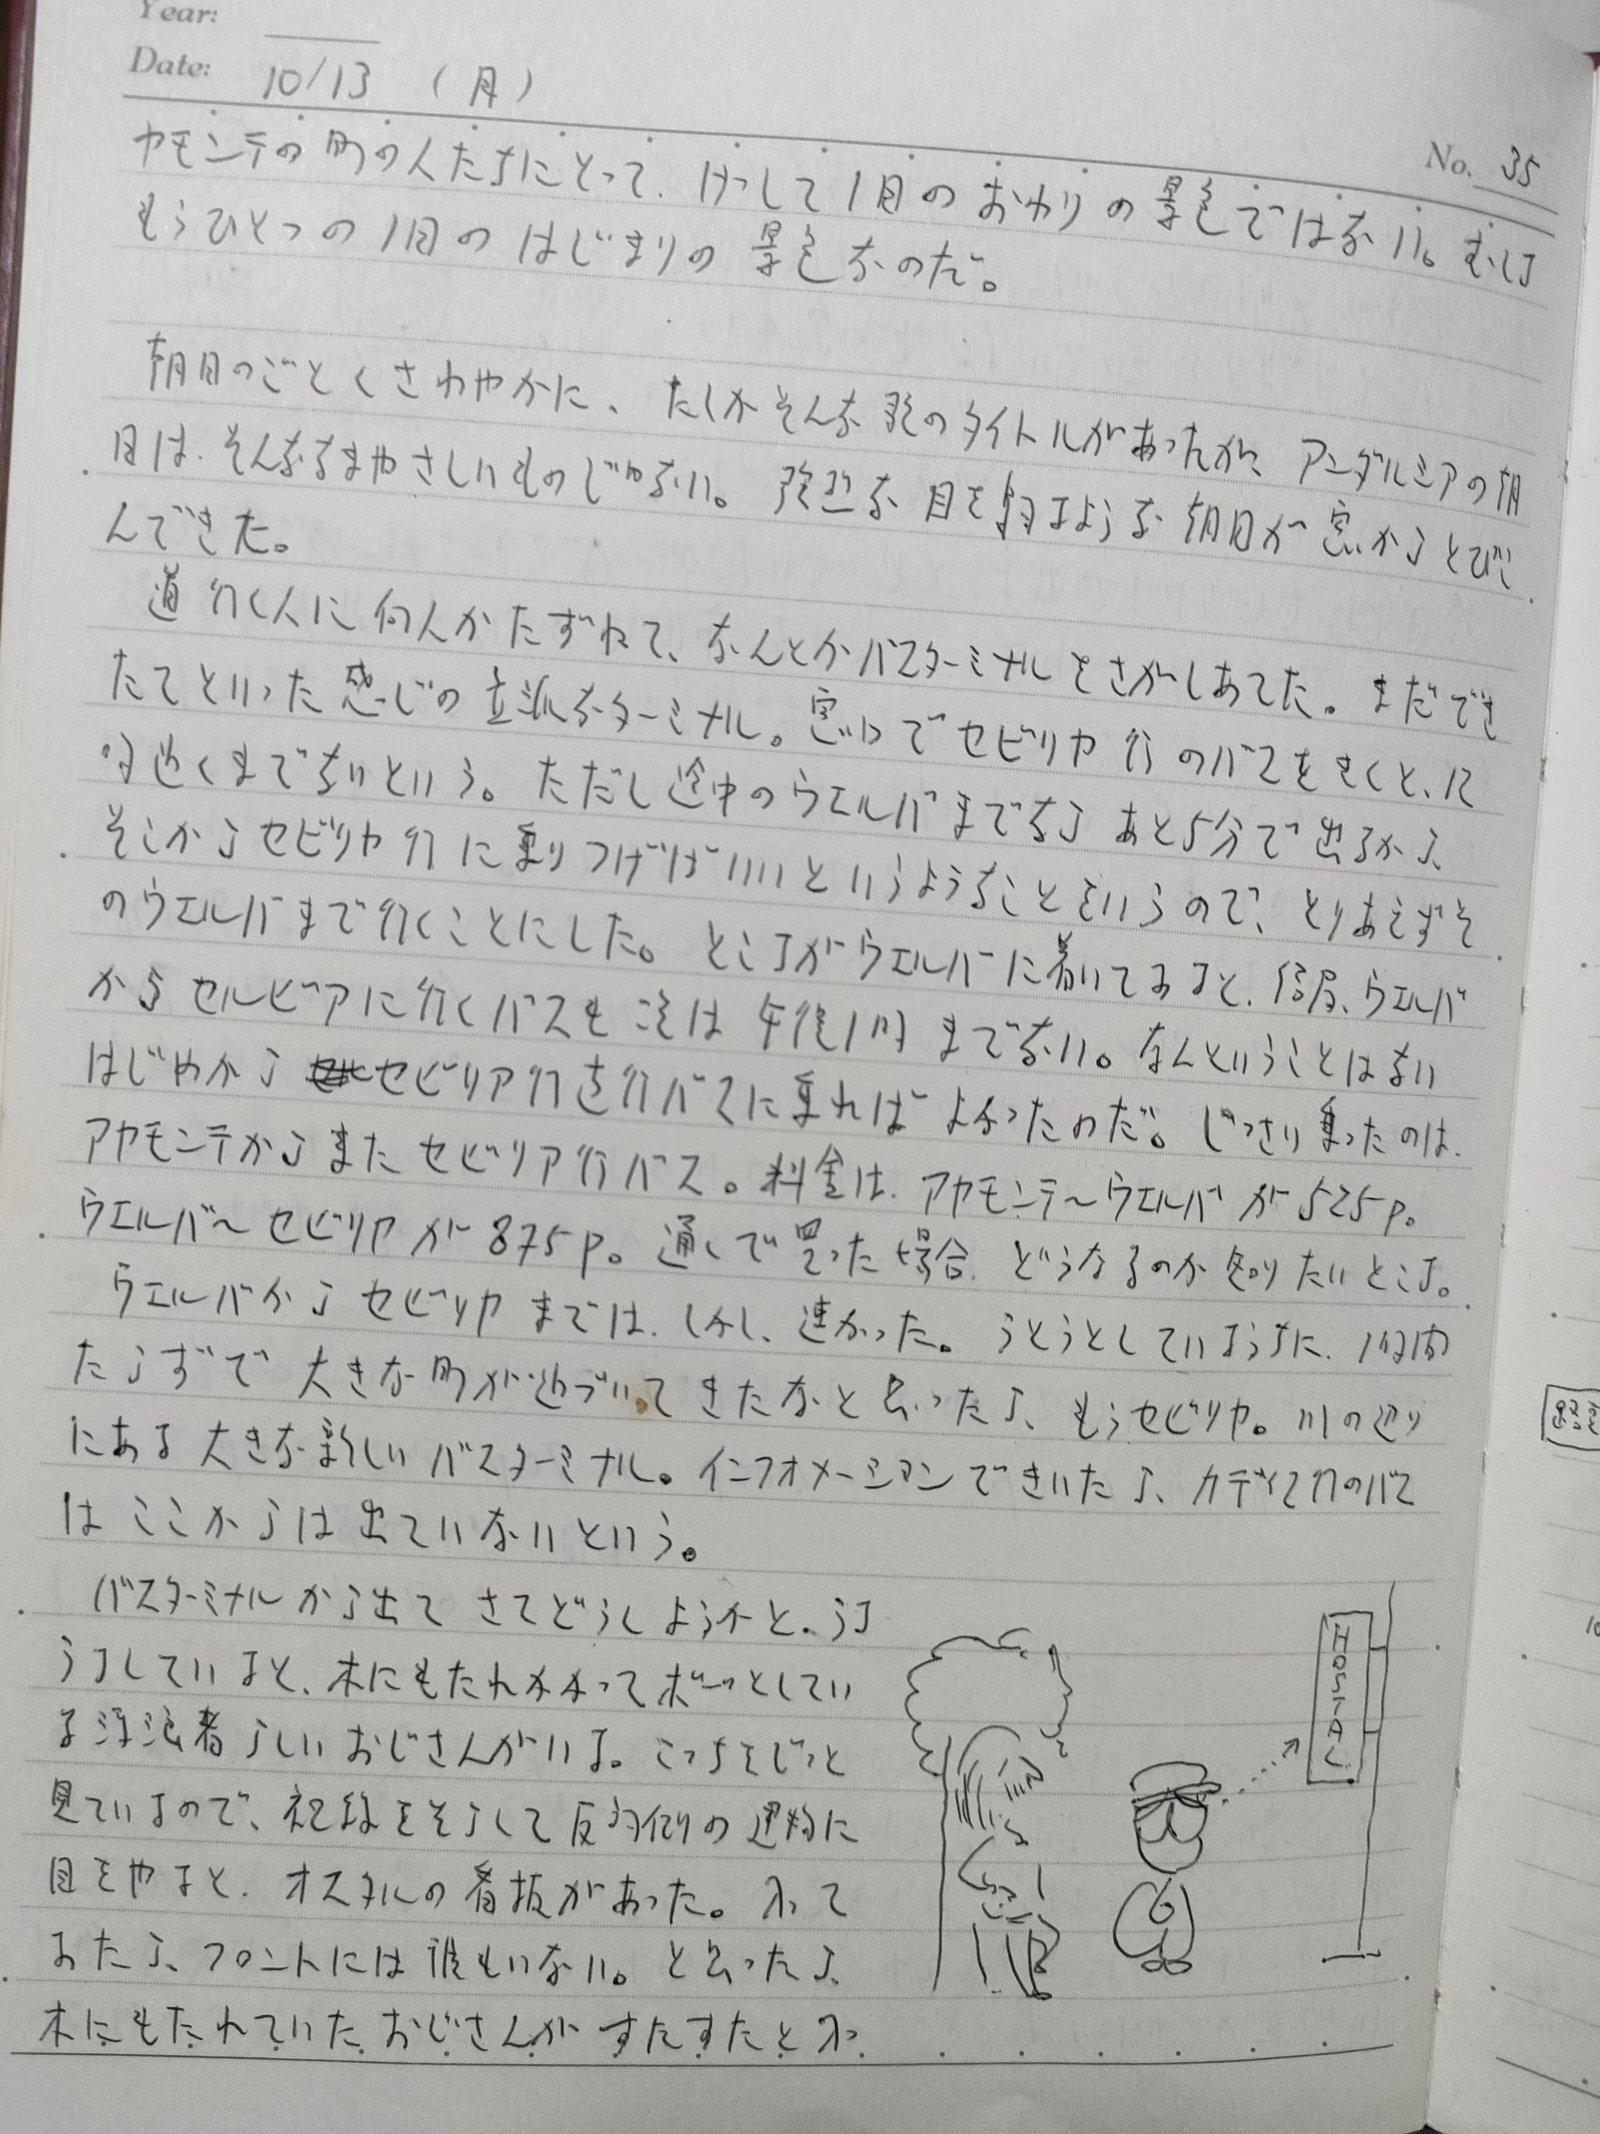 Year:
Date: 10/13 (月)
No. 35
ヤモンテの町の人たちにとって、けっして1日のおわりの景色ではない。むしろ
もうひとつの1日のはじまりの景色なのだ。
朝日のごとくさわやかに、たしかそんな歌のタイトルがあったが、アンダルシアの朝
日は、そんななまやさしいものじゃない。強烈な目を射るような朝日が窓からとびこ
んできた。
道行く人に何人かたずねて、なんとかバスターミナルをさがしあてた。まだでき
たてといった感じの立派なターミナル。窓口でセビリヤ行のバスをきくと、12
時近くまでないという。ただし途中のウエルバまでなら あと5分で出るから、
そこからセビリヤ行に乗りつげばいいというようなことをいうので、とりあえずそ
のウエルバまで行くことにした。ところがウエルバに着いてみると、結局、ウエルバ
からセルビアに行くバスも次は午後1時までない。なんということはない
はじめからセビリア行直行バスに乗ればよかったのだ。じっさい乗ったのは、
アヤモンテからまたセビリア行バス。料金は、アヤモンテ〜ウエルバが525p。
ウエルバ〜セビリヤが875p。通しで買った場合、どうなるのか知りたいところ。
ウエルバからセビリヤまでは、しかし、速かった。うとうとしているうちに、1時間
たらずで大きな町が近づいてきたなと思ったら、もうセビリヤ。川の辺り
にある大きな新しいバスターミナル。インフォメーションできいたら、カディス行のバス
はここからは出ていないという。
バスターミナルから出て さてどうしようかと、うろ
うろしていると、木にもたれかかってボーッとしてい
る浮浪者らしいおじさんがいる。こっちをじっと
見ているので、視線をそらして反対側の建物に
目をやると、オスタルの看板があった。入って
みたら、フロントには誰もいない。と思ったら、
木にもたれていたおじさんがすたすたと入っ
HOSTAL